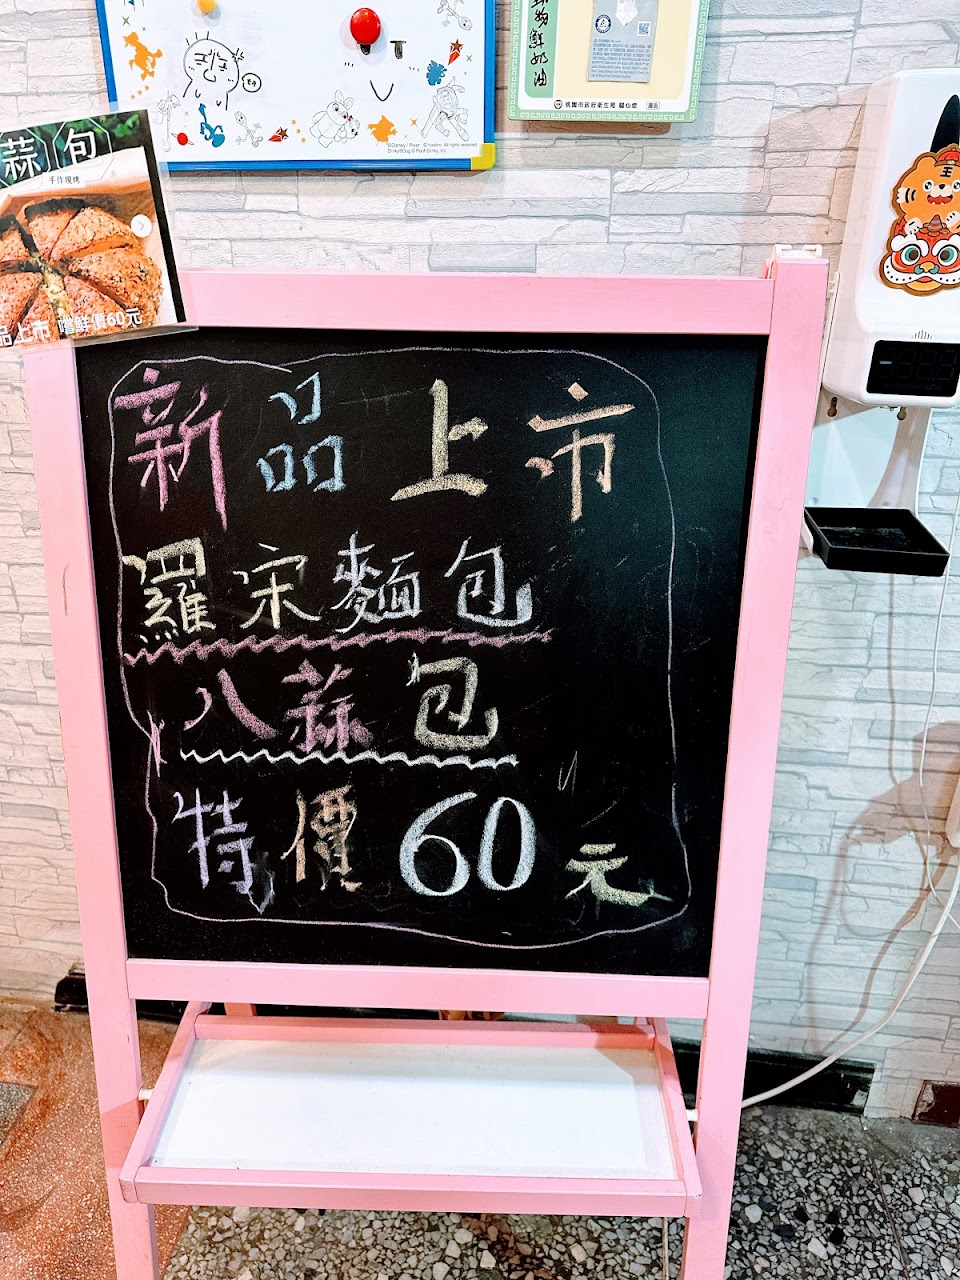 動物鮮奶油
桃園市政府衛生局 關心您
©Disney / Pixar © Hasbro. All rights reserved
Slinky®Dog © Poof-Slinky, Inc.
蒜包
手作現烤
品上市 嚐鮮價60元
新品上市
羅宋麵包
八蒜包
特價60元